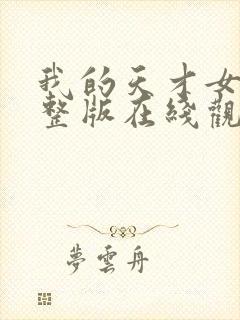 我的天才女
整版在綫觀
夢雲舟